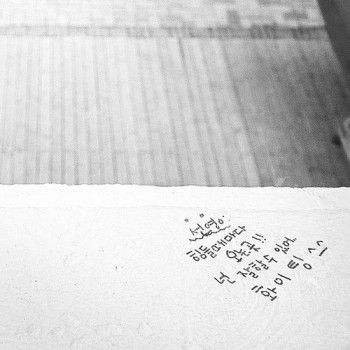 선영이
힘들때마다
오는곳!!
넌 잘할수 있어
화이팅 ^^